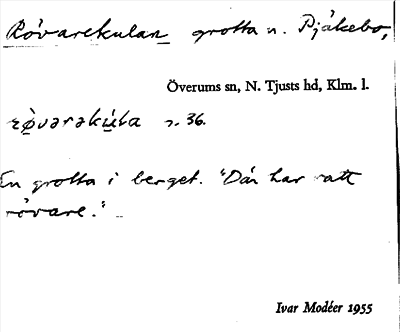 Rövarekulan grotta n. Pjåkebo,
Överums sn, N. Tjusts hd, Klm. l.
rø̀varəkúla 36.
En grotta i berget. "Där har satt
rövare."
Ivar Modéer 1955